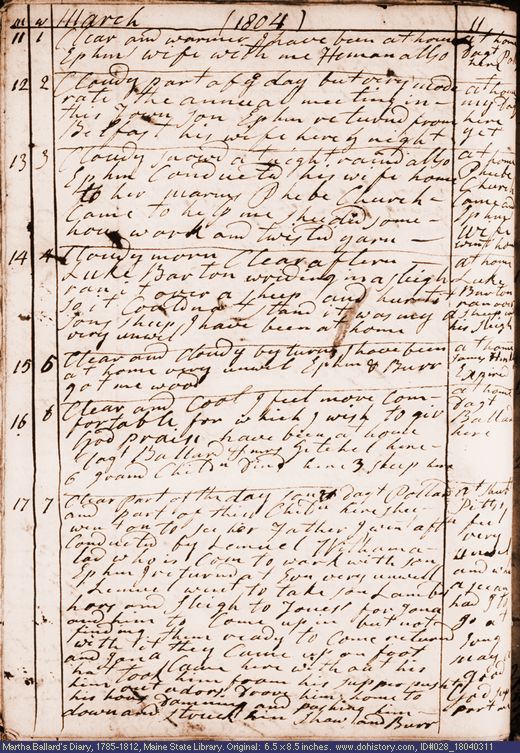 m w March [1804] 11
11 1 Clear and warmer I have been at home at home
Ephm wife with me Heman allso Dagt Pol
here
12 2 Cloudy part of ye day but very mode at home
rate the annual meeting in my Dag
this Town Son Ephm returnd from here
Belfast his wife here ye night yet
13 3 Cloudy snowd at night raind allso at home
Ephm Conducted his wife home Phebe
to her Marms Phebe Church Church
Came to help me shee did some came and
house work and twisted yarn Ephms
wife
went home
14 4 Cloudy morn Clear aftern at home
Luke Barton wriding in a sleigh Luke
ran over a sheep and hurt Barton
so it Could not stand it was my ran over
sons sheep I have been at home a sheep in
very unwel his sleigh
15 5 Clear and Cloudy by turns I have been at home
at home very unwel Ephm & Burr James
got me wood Expird
16 6 Clear and Cool I feel more Com at home
fortable for which I wish to giv Dagt
God praise have been a home Ballard
Dagt Ballard Hannah Getchel here here
6 grand Childn Dind here 3 sleep here
17 7 Clear part of the day sons Dagt Pollard at
and part of thier Childn here shee Pitts
went on to see her Father I win after I feel
Conducted by Lemuel Witham a very
lad who is Come to work with son unwel
Ephm I returnd at Evn very unwell and
Lemuel went to take son Lambd a
hors and Sleigh to Joness for Jona had I
and him to Come up in but not go at
finding them ready to Come returnd Jona
with it they Came up on foot
and Jona Came here with out his
hat took him from his supper pusht
him out a doors Drove him home to
his house Damning and pushing him
down and struck him Shaw and Burr
Martha Ballard's Diary, 1785-1812, Maine State Library. Original: 6.5 x 8.5 inches. www.dohistory.com, ID#028_18040311